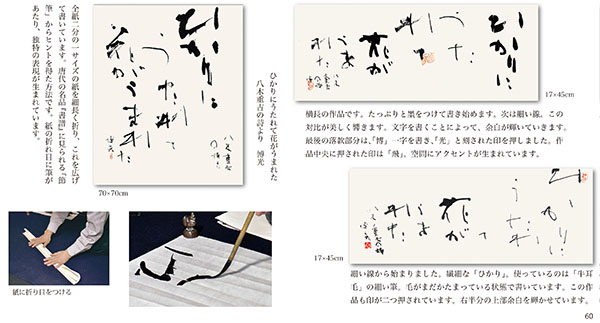 ひかりに
うたれて
花が
うまれた
70×70cm
ひかりにうたれて花がうまれた
八木重吉の詩より 博光
全紙二分の一サイズの紙を細長く折り、これを広げ
て書いています。唐代の名品『書譜』に見られる「節
筆」からヒントを得た方法です。紙の折れ目に筆が
あたり、独特の表現が生まれています。
紙に折り目をつける
ひかりに
うた
れて
花が
うま
れた
17×45cm
横長の作品です。たっぷりと墨をつけて書き始めます。次は細い線。この
対比が美しく響きます。文字を書くことによって、余白が輝いていきます。
最後の落款部分は、「博」一字を書き、「光」と刻された印を押しました。作
品中央に押された印は「飛」。空間にアクセントが生まれています。
ひかりに
うたれて
花が
うま
れた
17×45cm
細い線から始まりました。繊細な「ひかり」。使っているのは「牛耳
毛」の細い筆。毛がまだかたまっている状態で書いています。この作
品も印が二つ押されています。右半分の上部余白を輝かせています。
60